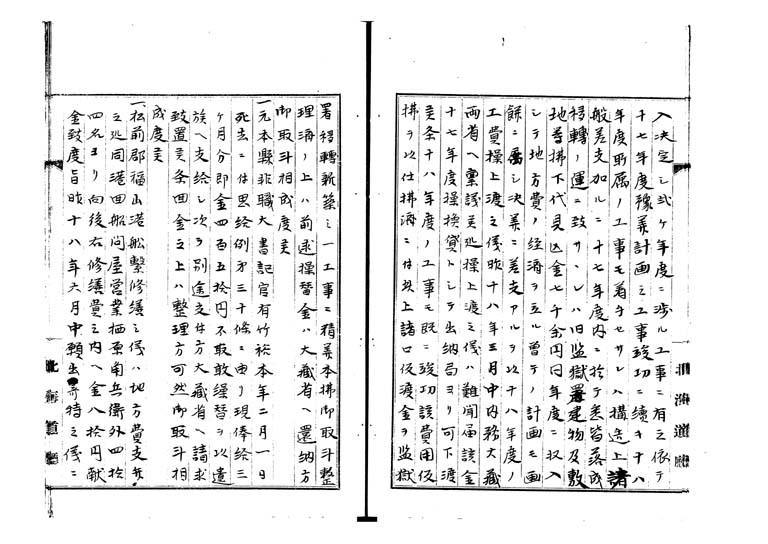 入決定シ弐ケ年度ニ渉ル工事ニ有之依テ
十七年度豫算計画之工事竣功ニ續キ十八
年度所属ノ工事モ着手セサレハ構造上諸
般差支加ルニ十七年度内ニ於テ悉皆落成
移轉ノ運ニ致サヽレハ旧監獄署建物及敷
地等拂下代見込金七千余円同年度ニ収入
シテ地方費ノ経済ヲ立ル曾テノ計画モ画
餅ニ属シ決算ニ差支アルヲ以十八年度ノ
工費操上渡之儀昨十八年三月中内務大蔵
両省ヘ稟議美処操上渡之儀ハ難聞届該金
十七年度操換貸トシテ出納局ヨリ可下渡
美条十八年度ノ工事モ既ニ竣功該費用仮
拂ヲ以仕拂済ニ付右上諸口仮渡金ヲ監獄
北海道廳
署移轉新築之一工事ニ精算本拂御取斗整
理済ノ上ハ前述操替金ハ大蔵省ヘ還納方
御取斗相成度美
一元本縣非職大書記官有竹裕本年二月一日
死去ニ付恩給例第三十條ニ由リ現俸給三
ケ月分即金四百五拾円不取敢繰替ヲ以遺
族ヘ支給シ次ヲ別途支廿方大蔵省ヘ請求
致置美条回金之上ハ整理方可然御取斗相
成度美
一松前郡福山港船繋修繕之儀ハ地方費支弁
之処同港回船問屋営業栖原南兵衛外四拾
四名ヨリ向後右修繕費之内ヘ金八拾円献
金致度旨昨十八年六月中願出奇特之儀ニ
北海道廳